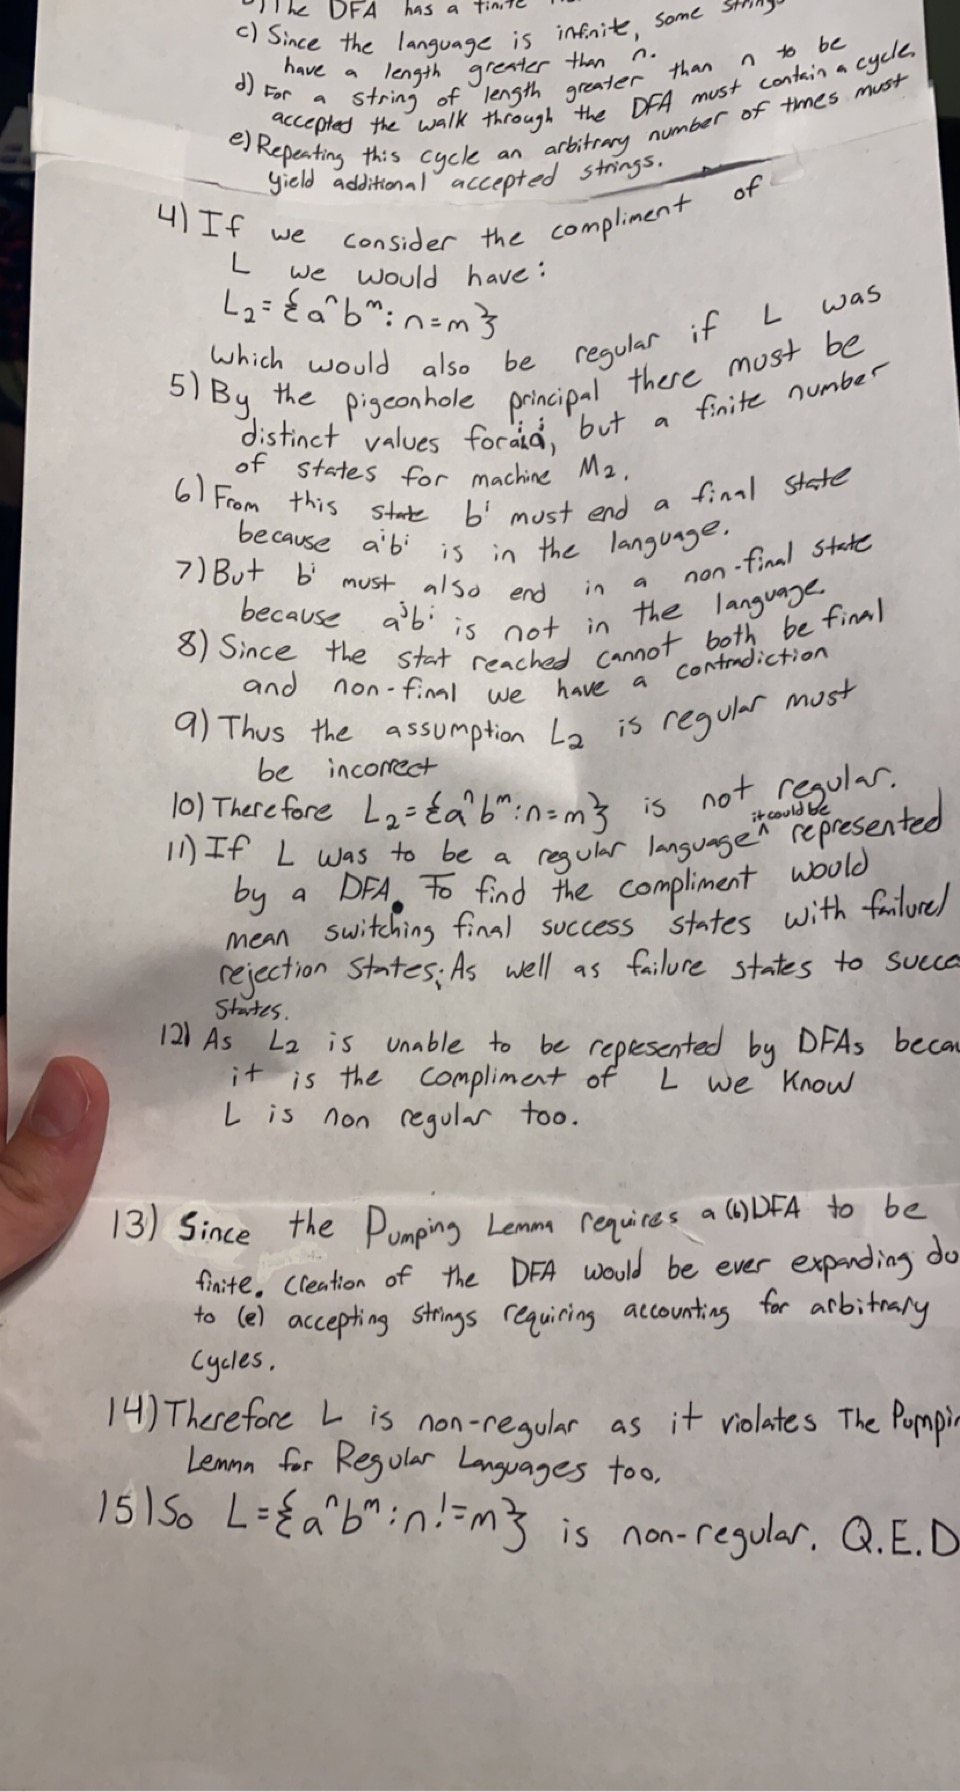 The DFA has a finite
c) Since the language is infinite, some strings
have a length greater than n.
d) For a string of length greater than n to be
accepted the walk through the DFA must contain a cycle.
e) Repeating this cycle an arbitrary number of times must
yield additional accepted strings.
4) If we consider the compliment of
L we would have:
L₂={aⁿbᵐ: n=m}
which would also be regular if L was
5) By the pigeonhole principal there must be
distinct values for, but a finite number
of states for machine M₂.
6) From this state bⁱ must end a final state
because aⁱbⁱ is in the language.
7) But bⁱ must also end in a non-final state
because aʲbⁱ is not in the language.
8) Since the stat reached cannot both be final
and non-final we have a contradiction
9) Thus the assumption L₂ is regular must
be incorrect
10) Therefore L₂={aⁿbᵐ:n=m} is not regular.
11) If L was to be a regular language ^ it could be represented
by a DFA. To find the compliment would
mean switching final success states with failure/
rejection states; As well as failure states to succe
states.
12) As L₂ is unable to be represented by DFAs becau
it is the compliment of L we know
L is non regular too.
13) Since the Pumping Lemma requires a (b) DFA to be
finite. Creation of the DFA would be ever expanding du
to (e) accepting strings requiring accounting for arbitrary
cycles.
14) Therefore L is non-regular as it violates The Pumpin
Lemma for Regular Languages too.
15) So L={aⁿbᵐ:n!=m} is non-regular. Q.E.D